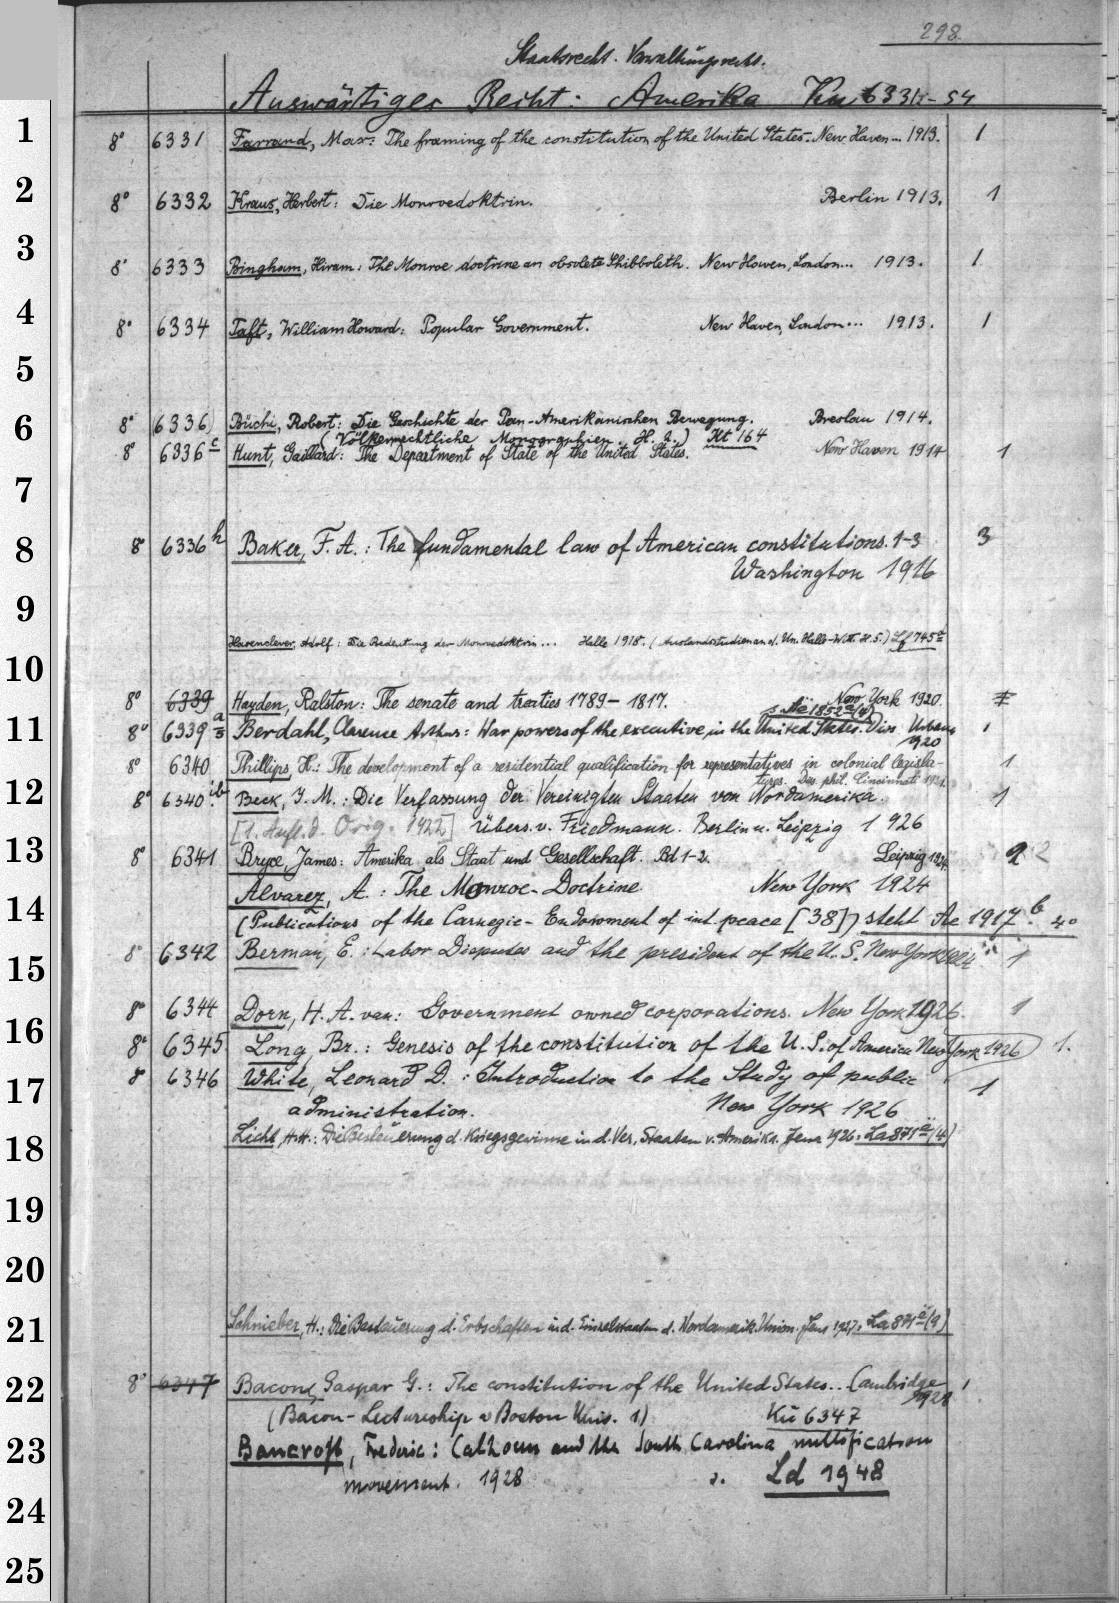 298
Staatsrecht. Verwaltungsrecht.
Auswärtiges Recht: Amerika Kü 6331-54
1 8° 6331 Farrand, Max: The framing of the constitution of the United States. New Haven... 1913. 1
2 8° 6332 Kraus, Herbert: Die Monroedoktrin. Berlin 1913. 1
3 8° 6333 Bingham, Hiram: The Monroe doctrine an obsolete Shibboleth. New Hawen, London... 1913. 1
4 8° 6334 Taft, William Howard: Popular Government. New Haven, London... 1913. 1
5
6 8° (6336) Büchi, Robert: Die Geschichte der Pan-Amerikanischen Bewegung. Breslau 1914.
(Völkerrechtliche Monographien. H. 2.) Kt 164
8° 6336 c Hunt, Gaillard: The Department of State of the United States. New Haven 1914 1
7
8 8° 6336 h Baker, F. A.: The fundamental law of American constitutions. 1-3 3
Washington 1916
9
Hasenclever, Adolf: Die Bedeutung der Monroedoktrin... Halle 1918. (Auslandsstudien an d. Un. Halle-W. H. 5.) Lf 745
10
8° 6339 Hayden, Ralston: The senate and treaties 1789-1817. New York 1920.
s. Ae 1852 (4)
11 8° 6339 a Berdahl, Clarence Arthur: War powers of the executive in the United States. Diss. Urbana 1
1920
8° 6340 Phillips, H.: The development of a residential qualification for representatives in colonial legisla- 1
tures. Diss. phil. Cincinnati 1921.
12 8° 6340 b Beck, J. M.: Die Verfassung der Vereinigten Staaten von Nordamerika. 1
[1. Aufl. d. Orig. 1922] Übers. v. Friedmann. Berlin u. Leipzig 1926
13 8° 6341 Bryce, James: Amerika als Staat und Gesellschaft. Bd 1-2. Leipzig 1924. 2 2
Alvarez, A.: The Monroe-Doctrine New York 1924
14 (Publications of the Carnegie-Endowment of int. peace [38]) steht Ae 1917 b 4°
15 8° 6342 Berman, E.: Labor Disputes and the president of the U. S. New York 1924 1
16 8° 6344 Dorn, H. A. van: Government owned corporations. New York 1926. 1
8° 6345 Long, Br.: Genesis of the constitution of the U. S. of America New York 1926 1.
17 8° 6346 White, Leonard D.: Introduction to the Study of public 1
administration. New York 1926
18 Licht, H.H.: Die Besteuerung d. Kriegsgewinne in d. Ver. Staaten v. Amerika. Jena 1926. La 871 ä (4)
19
20
21 Schnieber, H.: Die Besteuerung d. Erbschaften in d. Einzelstaaten d. Nordamerik. Union. Jena 1927. La 871 ä (9)
22 8° 6347 Bacon, Gaspar G.: The constitution of the United States... Cambridge 1
1928
(Bacon-Lectureship v Boston Univ. 1) Kü 6347
23 Bancroft, Frederic: Calhoun and the South Carolina nullification
movement. 1928 s. Ld 1948
24
25